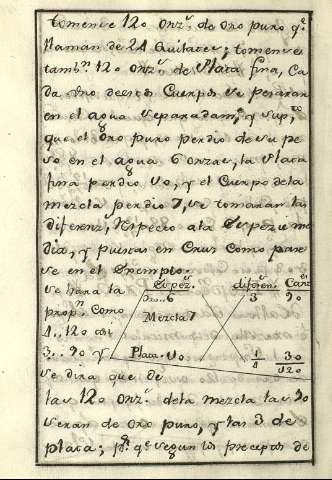 tomense 120 onz.s de oro puro q.e
llaman de 24 Quilates; tomense
tamb.n 120 onz.s de Plata fina, Ca
da Uno de estos Cuerpos se pesaran
en el agua separadam.te y sup.to
que el oro puro perdio de su pe
so en el agua 6 onzas, la Plata
fina perdio 10, y el Cuerpo de la
mezcla perdio 7, se tomaran las
diferenz.s, Respecto a la Especie me
dia, y puestas en Cruz Como pare
se en el Exemplo.
se hara la
prop.n Como
4..120 asi
3...90 y
Espez.s diferen.s Cant.s
Oro..6 3 90
Mezcla 7
Plata. 10 1 30
4 120
se dira que de
las 120 onz.s de la mezcla las 90
seran de oro puro, y las 30 de
plata; p.r q.e segun los preceptos de